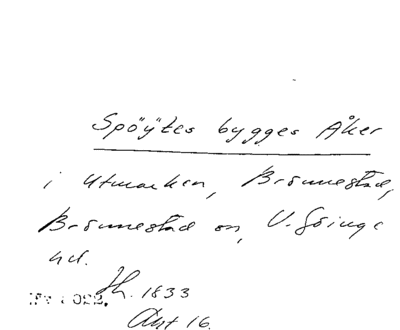 Spöÿtes bygges Åker
i Utmarken, Brönnestad,
Brönnestad sn, V. Göinge
hd.
Jh. 1833
Akt 16.